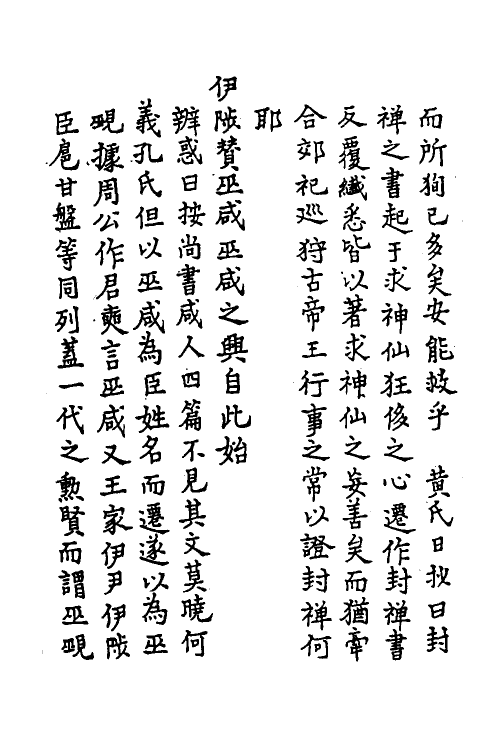 而所狥已多矣安能救乎　黄氏日抄曰封
禅之書起于求神仙狂侈之心遷作封禅書
反覆纎悉皆以著求神仙之妄善矣而猶牽
合郊祀巡狩古帝王行事之常以證封禅何
耶
伊陟贊巫咸巫咸之興自此始
辨惑曰按尚書咸人四篇不見其文莫曉何
義孔氏但以巫咸為臣姓名而遷遂以為巫
覡據周公作君奭言巫咸乂王家伊尹伊陟
臣扈甘盤等同列蓋一代之勲賢而謂巫覡